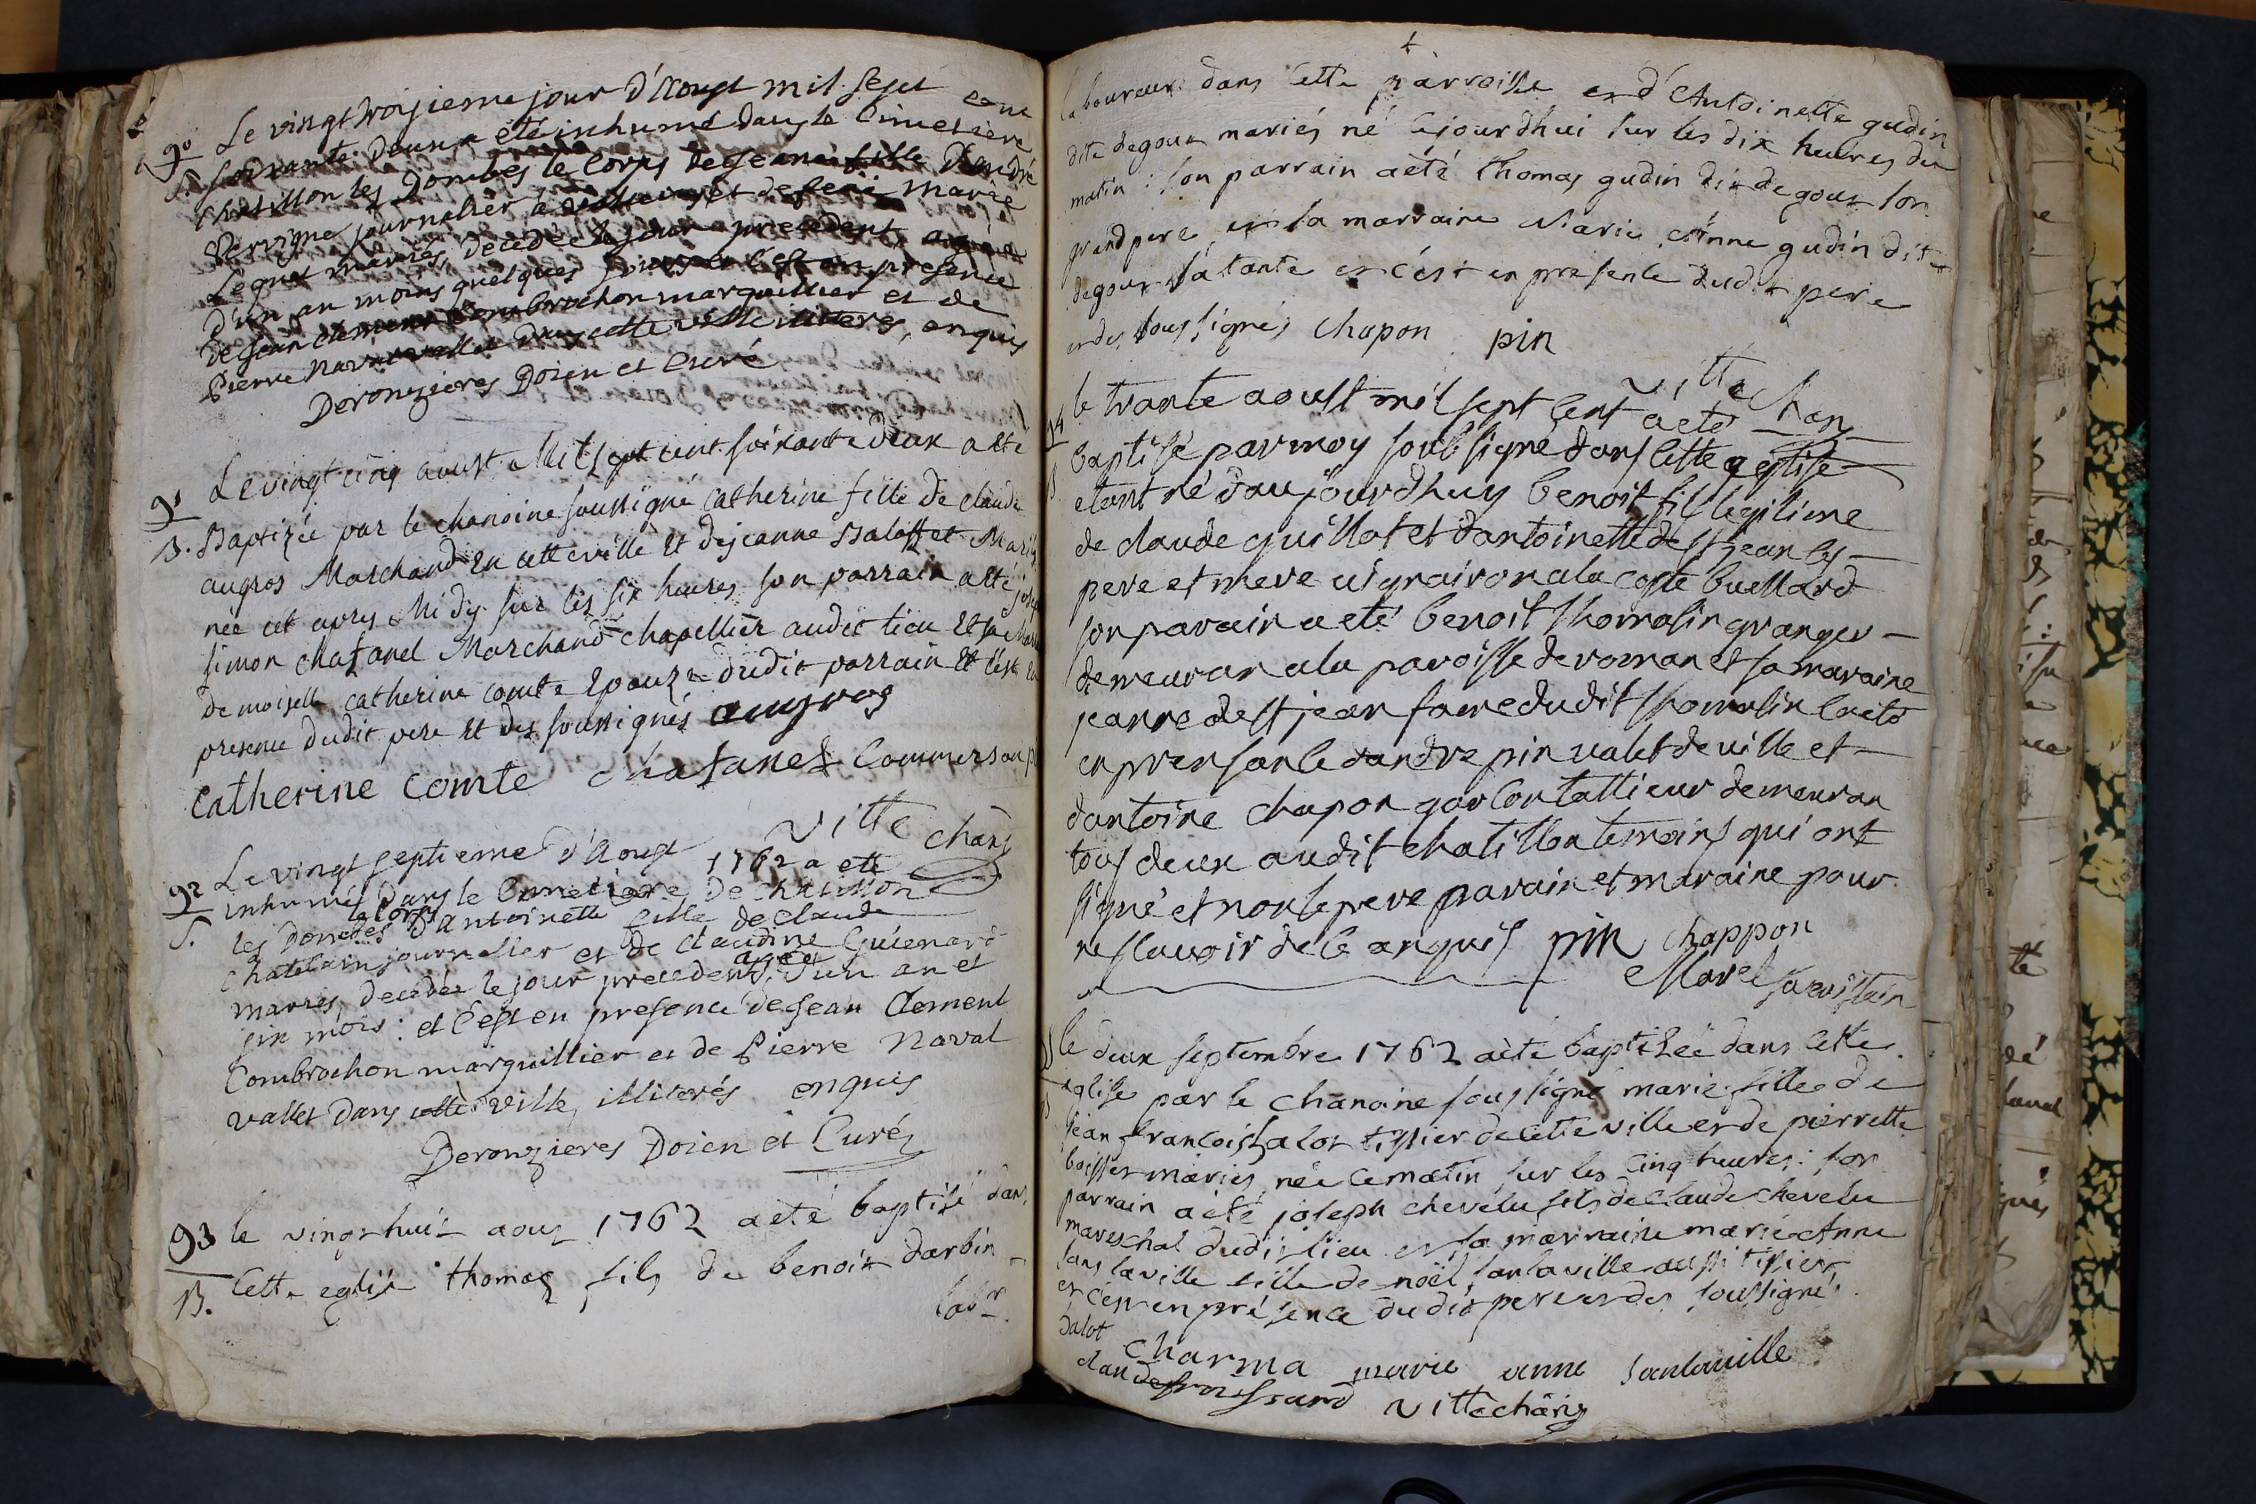 90 Le vingt troisieme jour d'Aougt mil sept cent
S. soixante deux a été inhumé dans le Cimetière
Chatillon les Dombes le Corps de Jeanne fille d'André
Pervigne journalier à et de feüe Marie
Legros mariés, decedée le jour precedent agée
D'un an moins quelques jours et c'est en presence
de Jean Clement Combrochon marguillier et de
Pierre Naval vallet dans cette ville illiteres, enquis
Deronzieres Doien et Curé
91 Le vingt cinq aoust Mil sept cent soixante deux a été
B. Baptizée par le chanoine soussigné catherine fille de claude
augros Marchand en cette ville et de jeanne Baloffet Mariés
née cet apres Midy sur les six heures son parrain a été joseph
simon chafanel Marchand chapellier audit lieu et sa Mar
demoiselle catherine comte Epouze dudit parrain et c'est en
presence dudit pere et des soussignés augros
Catherine Comte chafanel Commerson
Vitte chan
92 Le vingt septieme d'Aougt 1762 a été
inhumé dans le Cimetiere de Chatillon
S. les Dombes le Corps d'Antoinette fille de Claude
Chatelain journalier et de Claudine Guienard
mariés, decedée le jour precedent, agée d'un an et
six mois : et c'est en presence de Jean Clement
Combrochon marguillier et de Pierre Naval
vallet dans cette ville, illiterés enquis
Deronzieres Doien et Curé
93 le vingt huit aout 1762 a été baptisé dans
B. Cette eglise thomas fils de benoit darbin
labr
laboureur dans Cette parroisse et d'Antoinette gudin
dite degout mariés né cejourdhui sur les dix heures du
matin : son parrain a été thomas gudin dit degout son
grand pere, et la marraine Marie Anne gudin dite
degout sa tante et c'est en presence dudit pere
et des soussignés chapon pin
vitte chan
94 le trante aoust mil sept cent a eté
B baptisé par moy soubsigné dans cette eglise
etant né daujourdhuy benoit fils legitime
de claude guillot et dantoinette de st jean ses
pere et mere uigrairon a la coste buellard
son parain a eté benoit thomasin granger
demeuran a la paroisse de roman et sa maraine
jeanne de st jean fame dudit thomasin
en presance dandre pin valet de ville et
dantoine chapon garson tallieur demeuran
tous deux audit chatillon temoins qui ont
signé et non le pere parain et maraine pour
ne scavoir de ce anquis pin chappon
Morel sacristain
le deux septembre 1762 a èté baptisée dans Cette
eglise par le chanoine soussigné marie fille de
jean francois dalot tissier de Cette ville et de pierrette
boisset mariés née ce matin sur les Cinq heures : son
parrain a èté joseph chevelu fils de Claude chevelu
mareschal dudit lieu et sa marraine marie Anne
sanlaville fille de noël sanlaville aussi tissier
et c'est en présence dudit pere et des soussignés
dalot charma marie anne sanlaville
claude froissard vitte chan